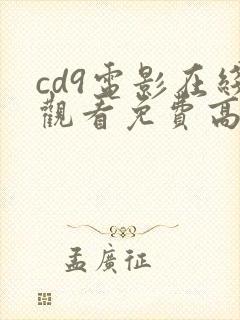 cd9電影在綫
觀看免費高
孟廣征